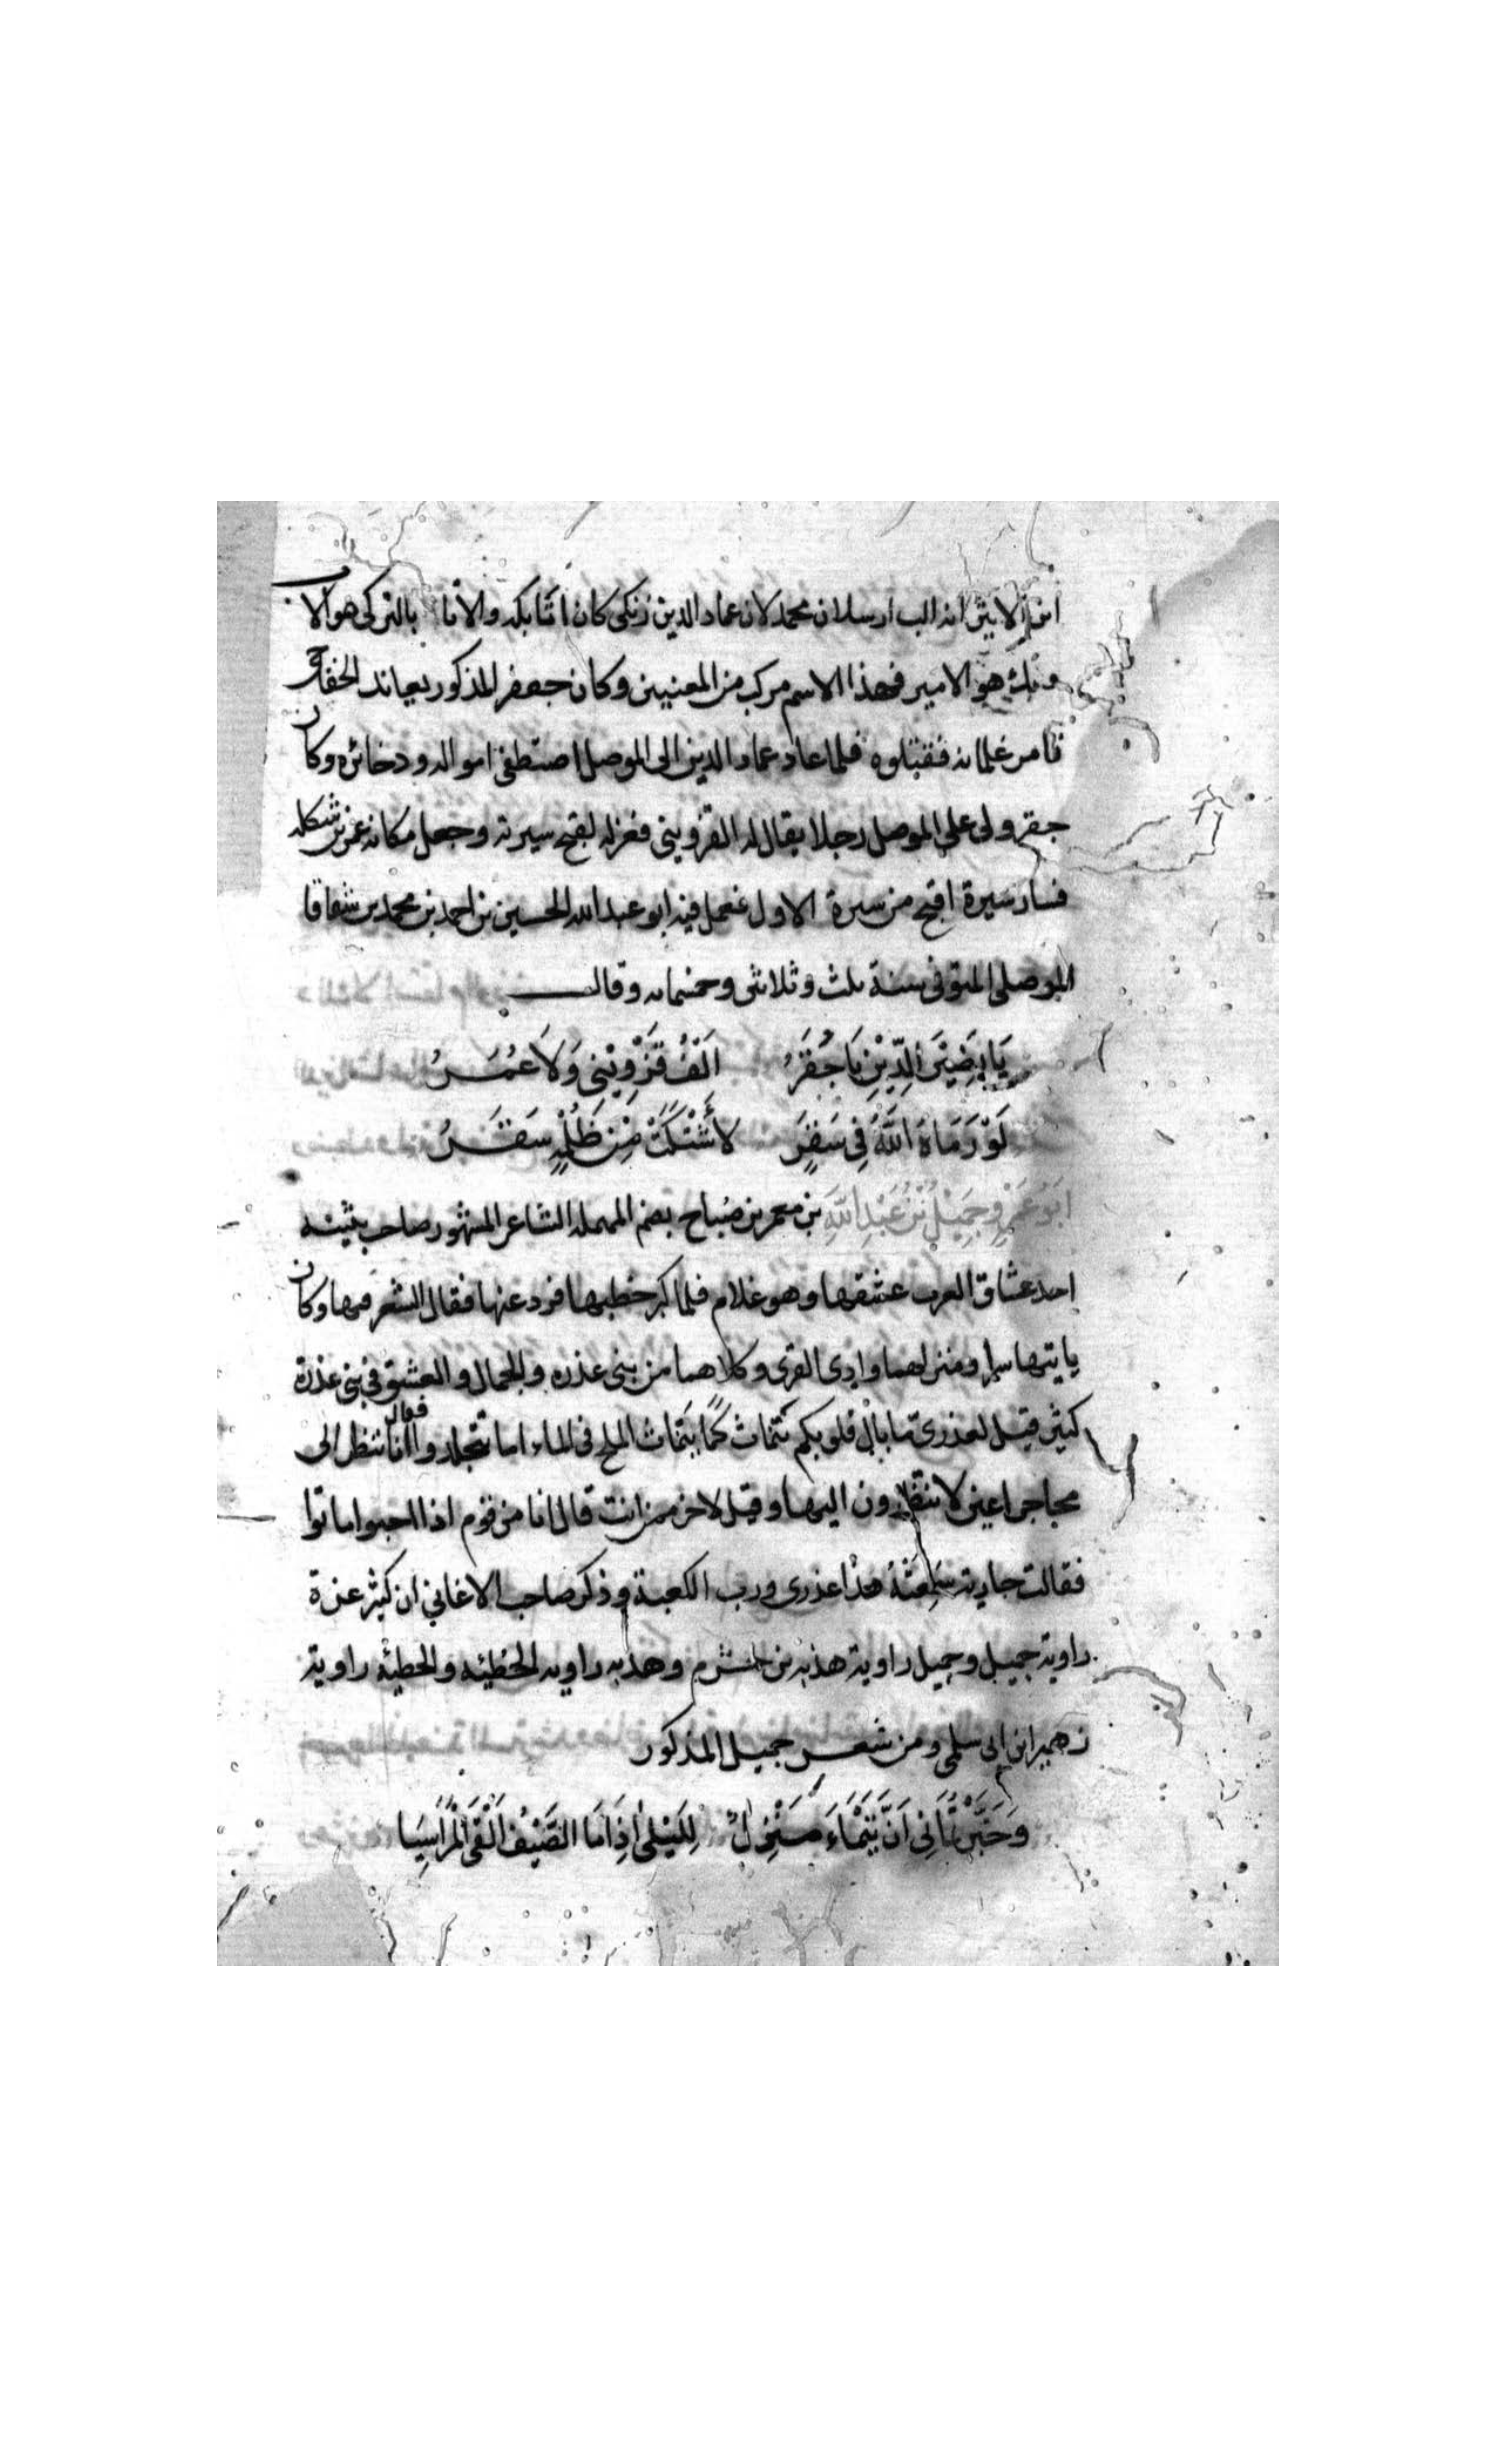 ابن الاثير انه الب ارسلان محمد لان عماد الدين زنكى كان اتابكه والاتا بالتركى هو الاب
وبك هو الامير فهذا الاسم مركب من المعنيين وكان جعفر المذكور يعاند الخفاجى
فامر غلمانه فقتلوه فلما عاد عماد الدين الى الموصل اصتطفى امواله ودخائره وكان
جقر ولى على الموصل رجلا يقال له القزوينى فعزله لقبح سيرته وجعل مكانه عمر بن شكله
فسار سيرة اقبح من سيرة الاول فعمل فيه ابو عبد الله الحسين بن احمد بن محمد بن شقاقا
الموصلى المتوفى سنة ثلث وثلاثى وخمسمانه وقال
يَا نَصِيْرَ الدِّيْنِ يَا جُقَرُ اَلْفُ قَزْوِيْنِى وَلَا عُمَرُ
لَوْ رَمَاهُ اللَّهُ فِى سَقَرٍ لَأَشْتَكَتْ مِنْ ظُلْمِهِ سَقَرُ
اَبُو عَمْرٍو جَمِيْلُ بْنُ عَبْدِ اللَّهِ بن معمر بن صباح بضم المهمله الشاعر المشهور صاحب بثينه
احد عشاق العرب عشقها وهو غلام فلما كبر خطبها فرد عنها فقال الشعر فيها وكان
ياتيها سرا ومنزلهما وادى القرى وكلاهما من بنى عذره والجمال والعشق فى بنى عذرة
كثير قيل لعذرى ما بال قلوبكم تتماث كما يتماث الملح فى الماء اما تتجلدوا فقال انا ننظر الى
محاجر اعين لا تنظرون اليها وقيل لاخر ممن انت قال انا من قوم اذا احبوا ماتوا
فقالت جارية سَمِعَتْهُ هذا عذرى ورب الكعبة وذكر صاحب الاغاني ان كثير عزة
راوية جميل وجميل راوية هدبه بن خشرم وهدبه راويه الحطيئه والحطيئه راوية
زهير ابن ابى سلمى ومن شعر جميل المذكور
وَخَبَّرْتُمَانِى اَنَّ تَيْمَاءَ مَنْزِلٌ لِلَيْلَى اِذَا مَا الصَّيْفُ اَلْقَى الْمَرَاسِيَا